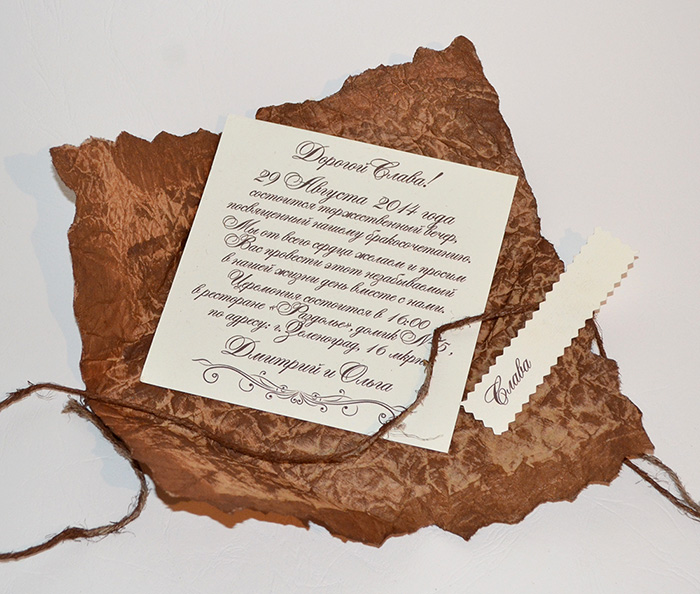 Дорогой Слава!
29 Августа 2014 года
состоится торжественный вечер,
посвященный нашему бракосочетанию.
Мы от всего сердца желаем и просим
Вас провести этот незабываемый
в нашей жизни день вместе с нами.
Церемония состоится в 16:00
в ресторане «Раздолье», домик №15,
по адресу: г. Зеленоград, 16 мкрн.
Дмитрий и Ольга
Слава